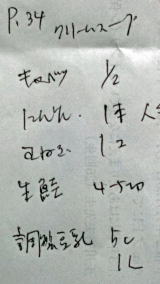 P.34 クリームスープ
キャベツ 1/2
にんじん. 1本 人
玉ねぎ 1コ
生鮭 4-5切
調製豆乳 5C
1L